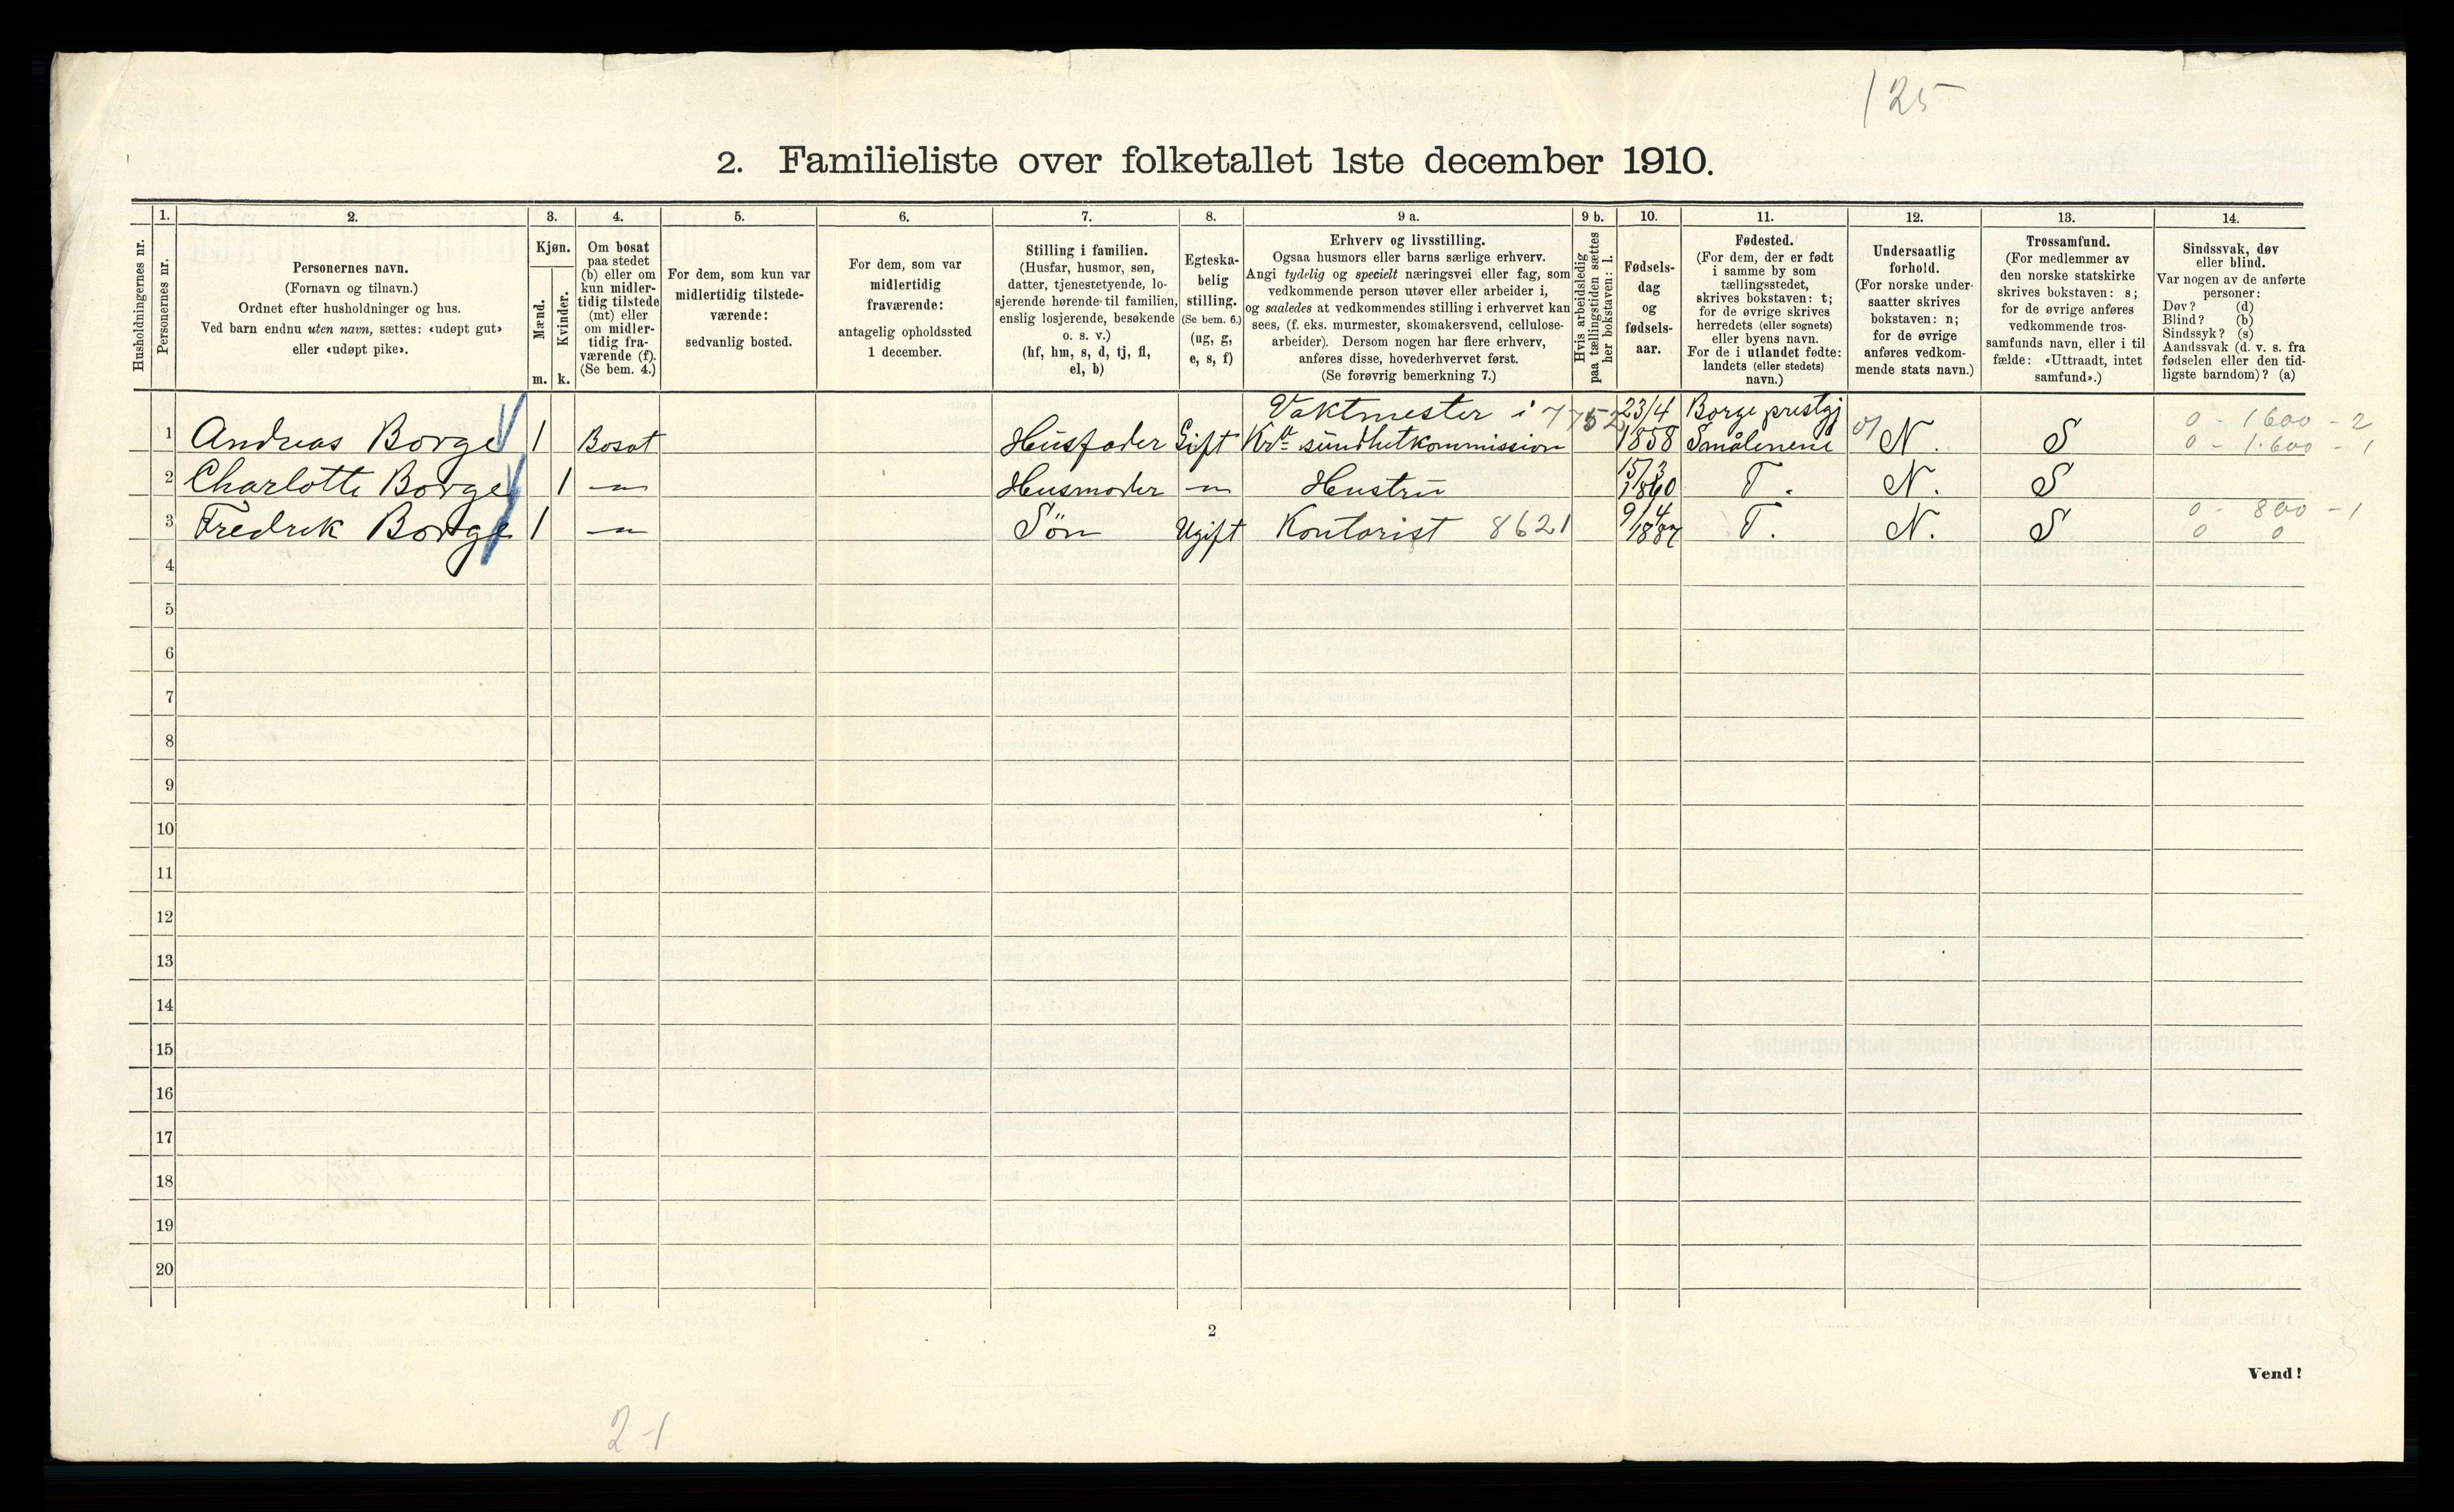 125
2. Familieliste over folketallet 1ste december 1910.
Husholdningernes nr.
1.
Personernes nr.
2.
Personernes navn.
(Fornavn og tilnavn.)
Ordnet efter husholdninger og hus.
Ved barn endnu uten navn, sættes: «udøpt gut»
eller «udøpt pike».
3.
Kjøn.
Mænd.
Kvinder.
m. k.
4.
Om bosat
paa stedet
(b) eller om
kun midler-
tidig tilstede
(mt) eller
om midler-
tidig fra-
værende (f).
(Se bem. 4.)
5.
For dem, som kun var
midlertidig tilstede-
værende:
sedvanlig bosted.
6.
For dem, som var
midlertidig
fraværende:
antagelig opholdssted
1 december.
7.
Stilling i familien.
(Husfar, husmor, søn,
datter, tjenestetyende, lo-
sjerende hørende til familien,
enslig losjerende, besøkende
o. s. v.)
(hf, hm, s, d, tj, fl,
el, b)
8.
Egteska-
belig
stilling.
(Se bem. 6.)
(ug, g,
e, s, f)
9 a.
Erhverv og livsstilling.
Ogsaa husmors eller barns særlige erhverv.
Angi tydelig og specielt næringsvei eller fag, som
vedkommende person utøver eller arbeider i,
og saaledes at vedkommendes stilling i erhvervet kan
sees, (f. eks. murmester, skomakersvend, cellulose-
arbeider). Dersom nogen har flere erhverv,
anføres disse, hovederhvervet først.
(Se forøvrig bemerkning 7.)
9 b.
Hvis arbeidsledig
paa tællingstiden sættes
her bokstaven: l.
10.
Fødsels-
dag
og
fødsels-
aar.
11.
Fødested.
(For dem, der er født
i samme by som
tællingsstedet,
skrives bokstaven: t;
for de øvrige skrives
herredets (eller sognets)
eller byens navn.
For de i utlandet fødte:
landets (eller stedets)
navn.)
12.
Undersaatlig
forhold.
(For norske under-
saatter skrives
bokstaven: n;
for de øvrige
anføres vedkom-
mende stats navn.)
13.
Trossamfund.
(For medlemmer av
den norske statskirke
skrives bokstaven: s;
for de øvrige anføres
vedkommende tros-
samfunds navn, eller i til-
fælde: «Uttraadt, intet
samfund».)
14.
Sindssvak, døv
eller blind.
Var nogen av de anførte
personer:
Døv? (d)
Blind? (b)
Sindssyk? (s)
Aandssvak (d. v. s. fra
fødselen eller den tid-
ligste barndom)? (a)
Vaktmester i 7752 23/4 Borge prestgj 0 - 1600 - 2
1 Andreas Borge 1 Bosat Husfader Gift Kr.a sundhetkommission 1858 Smålenene 01 N. S 0 - 1600 - 1
2 Charlotte Borge 1 —„— Husmoder —„— Hustru 15/3 1860 T. N. S
0 - 800 - 1
3 Fredrik Borge 1 —„— Søn Ugift Kontorist 8621 9/4 T. N. S 0 0
4
5
6
7
8
9
10
11
12
13
14
15
16
17
18
19
20
2
Vend!
2-1